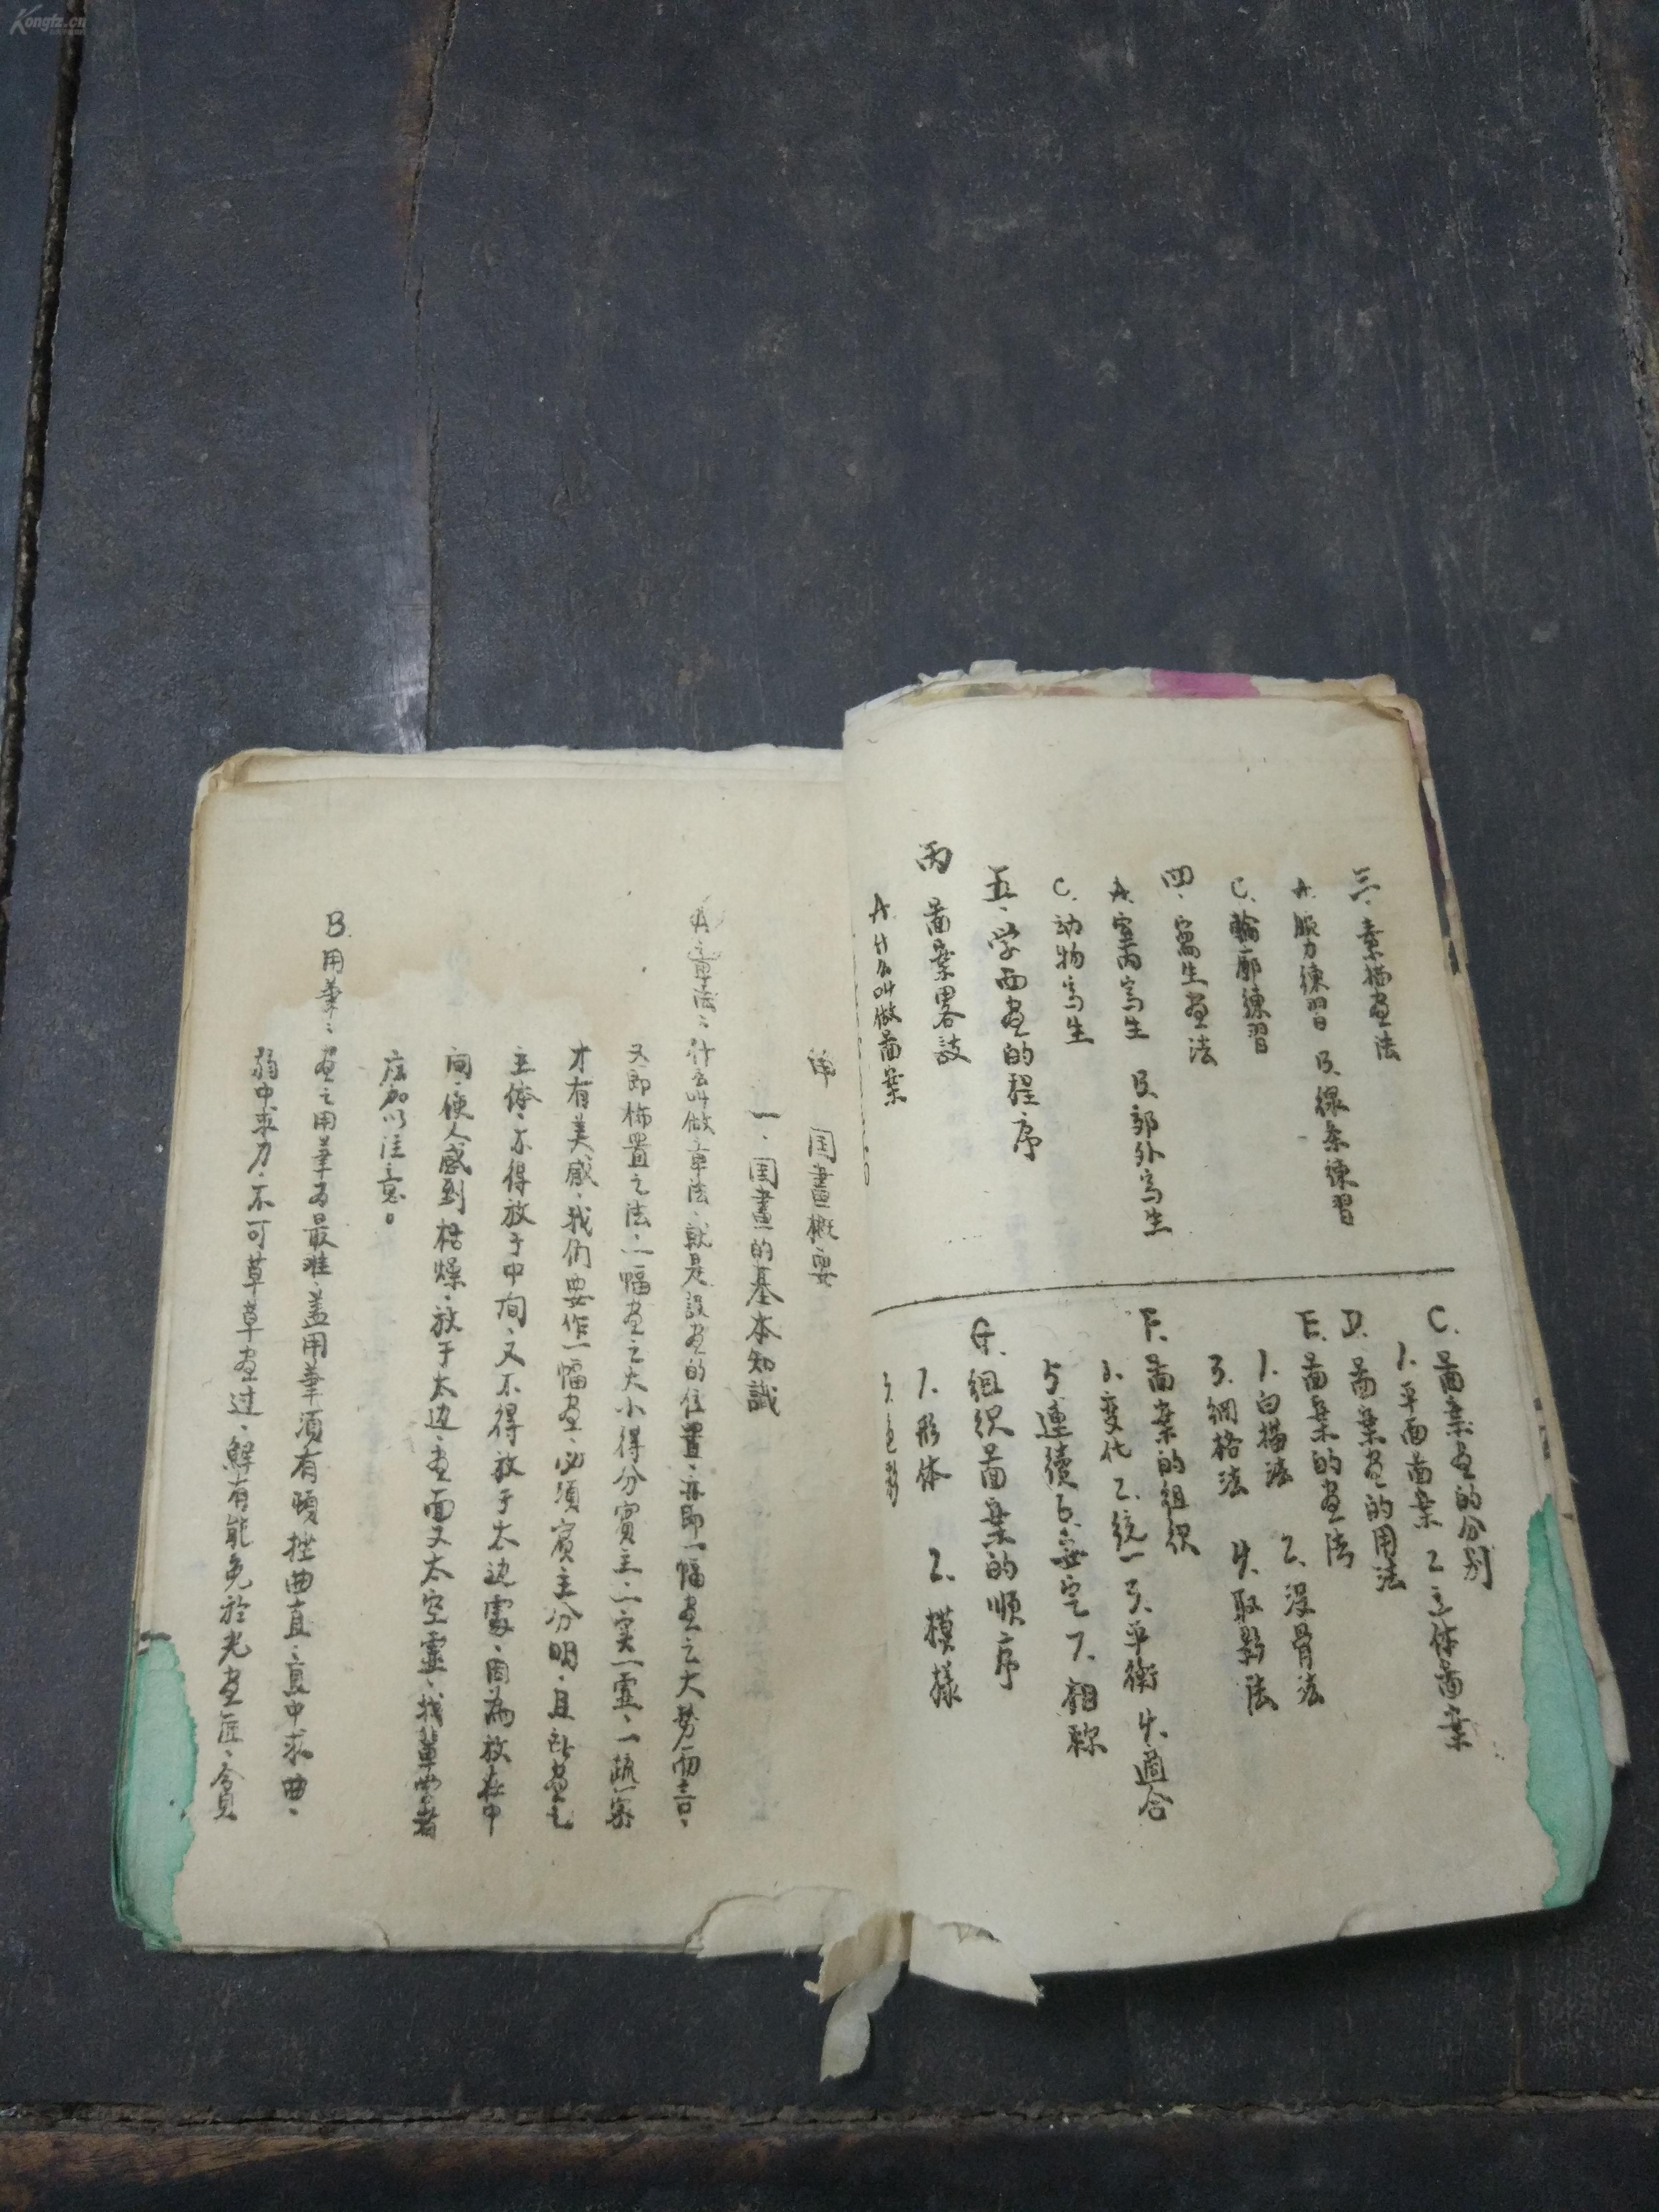 三、素描画法
A. 腕力練習 B. 線条練習
C. 輪廓練習
四、寫生画法
A. 室内写生 B. 郊外写生
C. 动物写生
五、学西画的程序
丙 啚案畧談
A. 什么叫做啚案
C. 啚案画的分别
1. 平面啚案 2. 立体啚案
D. 啚案画的用法
E. 啚案的画法
1. 白描法 2. 没骨法
3. 網格法 4. 取影法
F. 啚案的組织
1. 变化 2. 統一 3. 平衡 4. 適合
5. 連續 6. 安定 7. 相称
G. 組织啚案的順序
1. 形体 2. 模樣
3. 色彩
囯畫概要
一、囯畫的基本知識
A. 章法：什么叫做章法、就是設画的位置、亦即一幅画之大势而言、
又即佈置之法、一幅画之大小得分賓主、一实一虚、一疏一密
才有美感、我们要作一幅画、必須賓主分明、且
主体、不得放于中间、又不得放于太边處、因為放在中
间、使人感到枯燥、放于太边、画面又太空虚、我輩学者
应加以注意。
B. 用筆：画之用筆为最难、盖用筆須有頓挫曲直、直中求曲、
弱中求力、不可草草画过、鮮有能免於光画匠、貪
Kongfz.cn